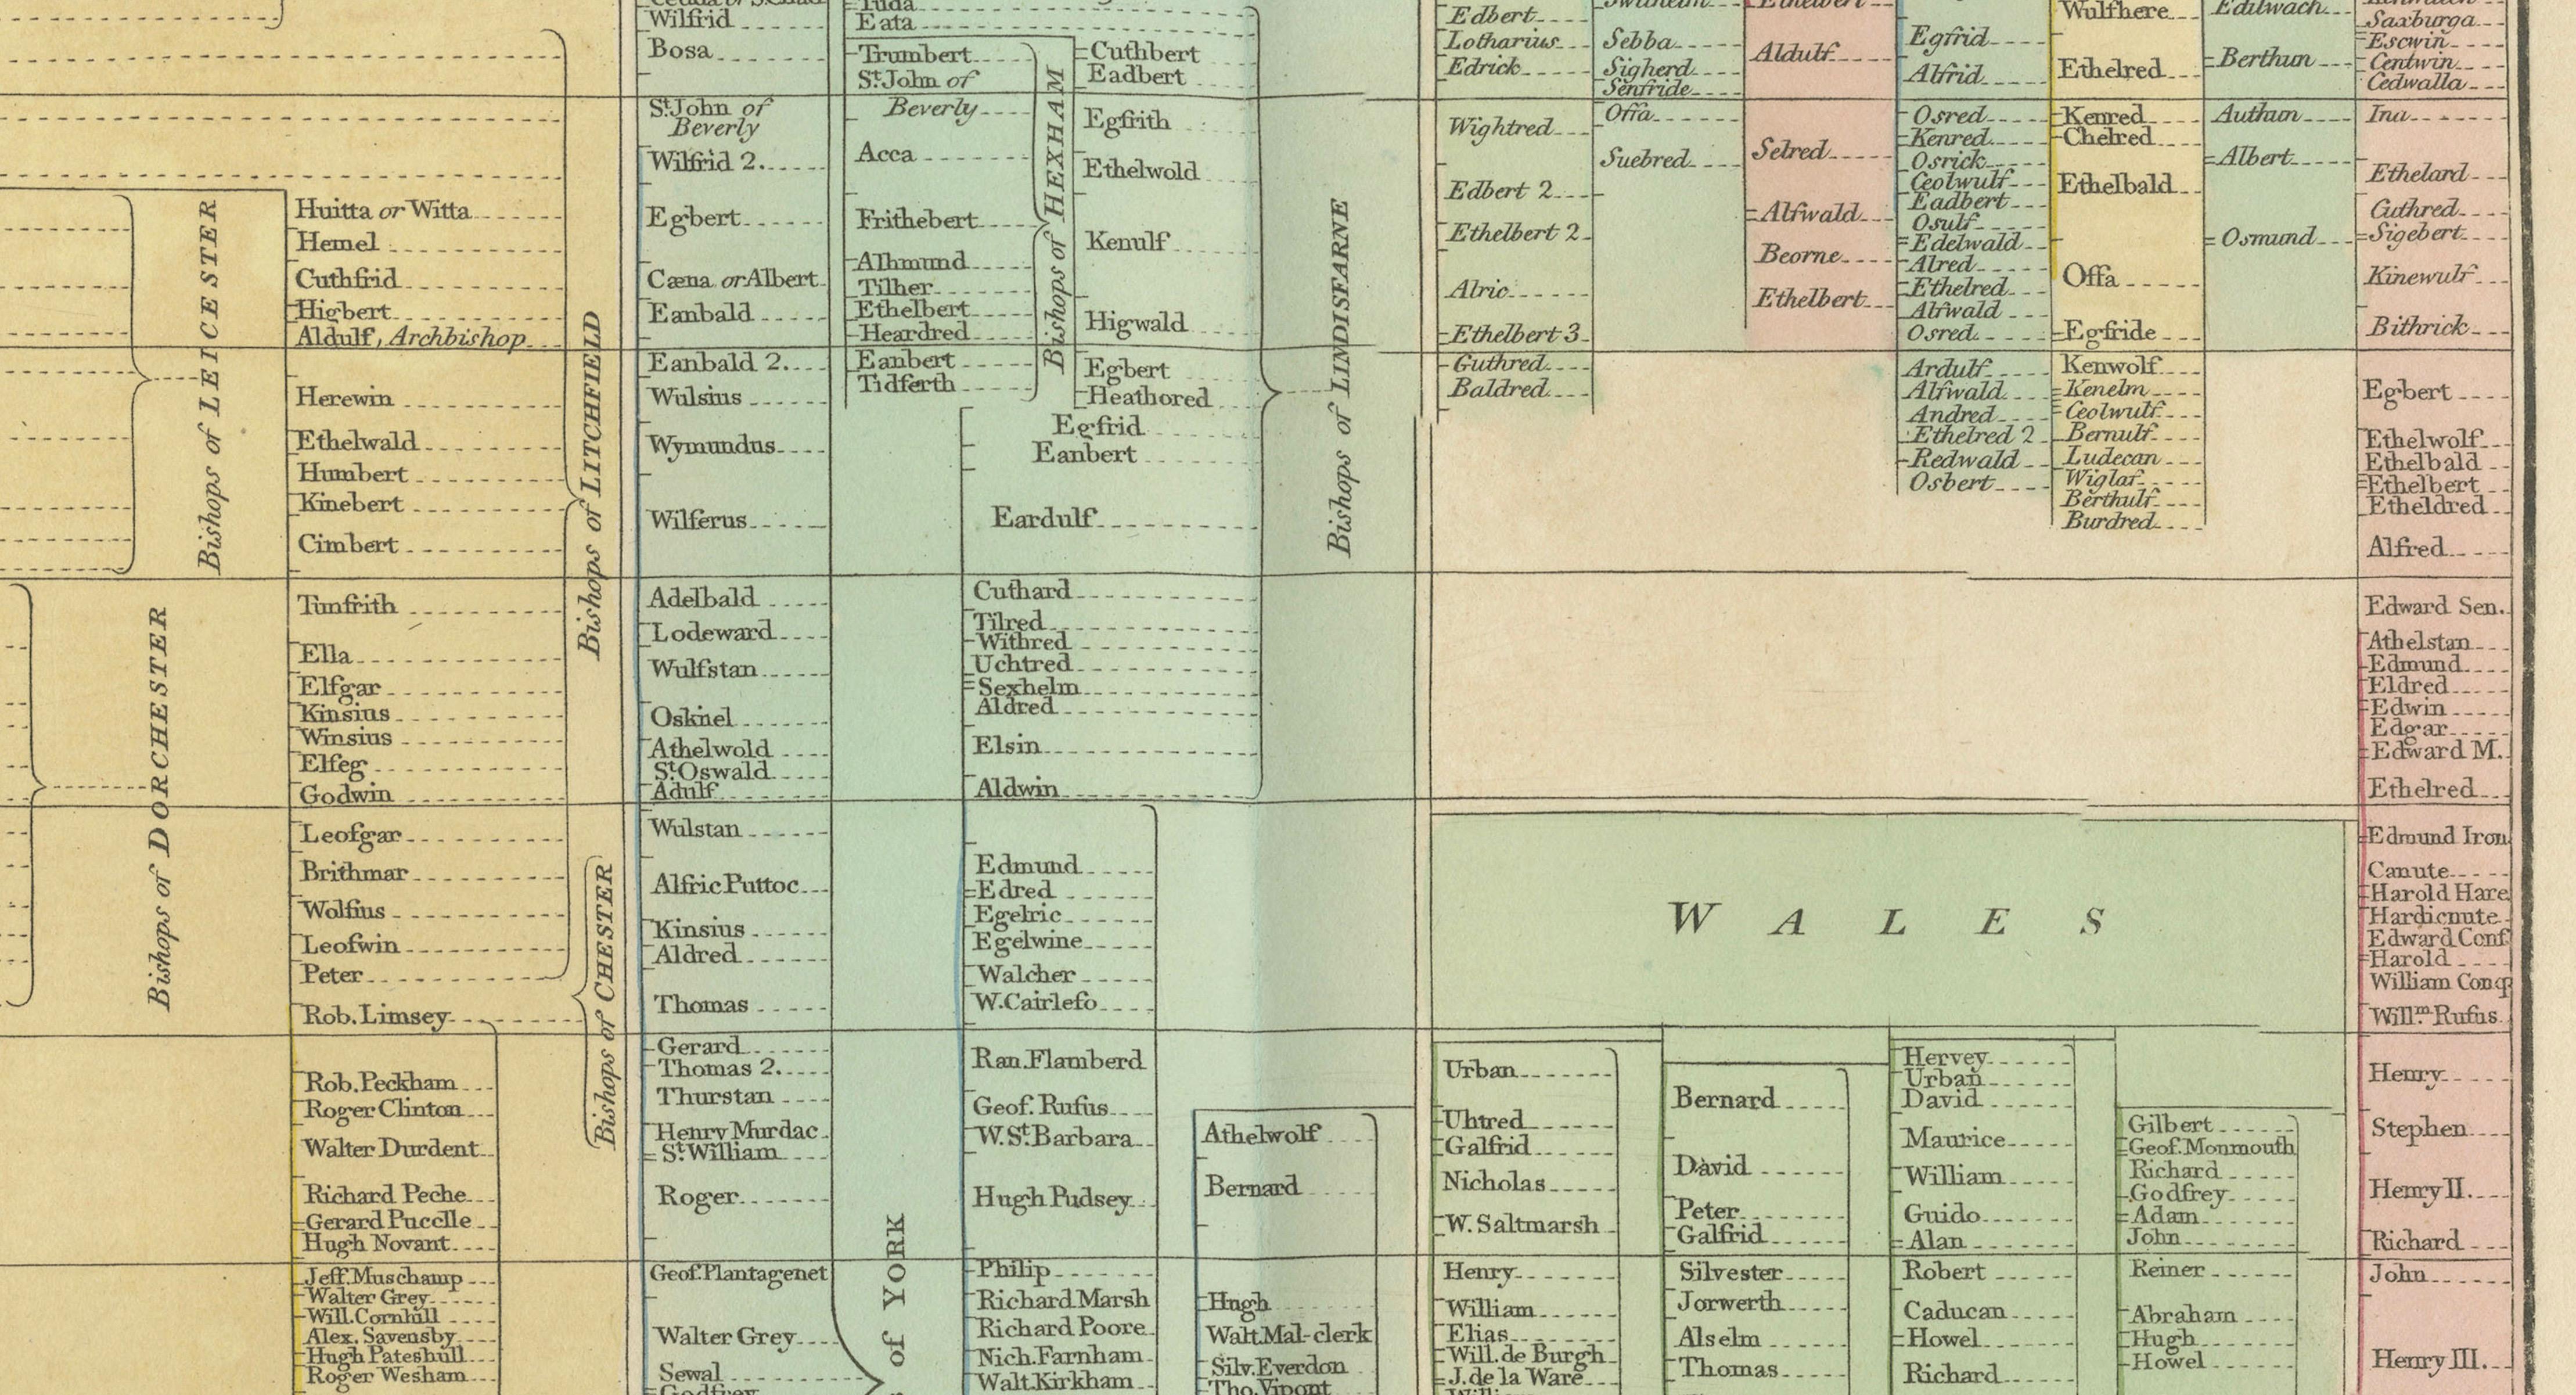 Wilfrid
Bosa
St. John of
Beverly
Wilfrid 2.
Egbert
Cæna or Albert
Eanbald
Eanbald 2.
Wulsius
Wymundus
Wilferus
Adelbald
Lodeward
Wulfstan
Osknel
Athelwold
St. Oswald
Adulf
Wulstan
Alfric Puttoc
Kinsius
Aldred
Thomas
Gerard
Thomas 2.
Thurstan
Henry Murdac
St. William
Roger
Geof. Plantagenet
Walter Grey
Sewal
of YORK
Bishops of LEICESTER
Bishops of DORCHESTER
Huitta or Witta
Hemel
Cuthfrid
Higbert
Aldulf, Archbishop
Herewin
Ethelwald
Humbert
Kinebert
Cimbert
Tunfrith
Ella
Elfgar
Kinsius
Winsius
Elfeg
Godwin
Leofgar
Brithmar
Wolfius
Leofwin
Peter
Rob. Limsey
Rob. Peckham
Roger Clinton
Walter Durdent
Richard Peche
Gerard Pucelle
Hugh Novant
Jeff. Muschamp
Walter Grey
Will. Cornhill
Alex. Savensby
Hugh Pateshull
Roger Wesham
Bishops of LITCHFIELD
Bishops of CHESTER
Tuda
Eata
Trumbert
St. John of
Beverly
Acca
Frithebert
Alhmund
Tilher
Ethelbert
Heardred
Eanbert
Tidferth
Bishops of HEXHAM
Cuthbert
Eadbert
Egfrith
Ethelwold
Kenulf
Higwald
Egbert
Heathored
Egfrid
Eanbert
Eardulf
Cuthard
Tilred
Withred
Uchtred
Sexhelm
Aldred
Elsin
Aldwin
Bishops of LINDISFARNE
Edmund
Edred
Egelric
Egelwine
Walcher
W. Cairlefo
Ran. Flamberd
Geof. Rufus
W. St. Barbara
Hugh Pudsey
Philip
Richard Marsh
Richard Poore
Nich. Farnham
Walt. Kirkham
Athelwolf
Bernard
Hugh
Walt. Mal-clerk
Silv. Everdon
Tho. Vipont
Edbert
Lotharius
Edrick
Wightred
Edbert 2
Ethelbert 2
Alric
Ethelbert 3
Guthred
Baldred
Sebba
Sigherd
Senfride
Offa
Suebred
Aldulf
Selred
Alfwald
Beorne
Ethelbert
Egfrid
Alfrid
Osred
Kenred
Osrick
Ceolwulf
Eadbert
Osulf
Edelwald
Alred
Ethelred
Alfwald
Osred
Ardulf
Alfwald
Andred
Ethelred 2
Redwald
Osbert
Wulfhere
Ethelred
Kenred
Chelred
Ethelbald
Offa
Egfride
Kenwolf
Kenelm
Ceolwulf
Bernulf
Ludecan
Wiglaf
Berthulf
Burdred
Edilwach
Berthun
Authun
Albert
Osmund
Saxburga
Escwin
Centwin
Cedwalla
Ina
Ethelard
Cuthred
Sigebert
Kinewulf
Bithrick
Egbert
Ethelwolf
Ethelbald
Ethelbert
Etheldred
Alfred
Edward Sen.
Athelstan
Edmund
Eldred
Edwin
Edgar
Edward M.
Ethelred
Edmund Iron
Canute
Harold Hare
Hardicnute
Edward Conf
Harold
William Conq
Willm. Rufus
Henry
Stephen
Henry II.
Richard
John
Henry III.
WALES
Urban
Uhtred
Galfrid
Nicholas
W. Saltmarsh
Henry
William
Elias
Will. de Burgh
J. de la Ware
Bernard
David
Peter
Galfrid
Silvester
Jorwerth
Alselm
Thomas
Hervey
Urban
David
Maurice
William
Guido
Alan
Robert
Caducan
Howel
Richard
Gilbert
Geof. Monmouth
Richard
Godfrey
Adam
John
Reiner
Abraham
Hugh
Howel